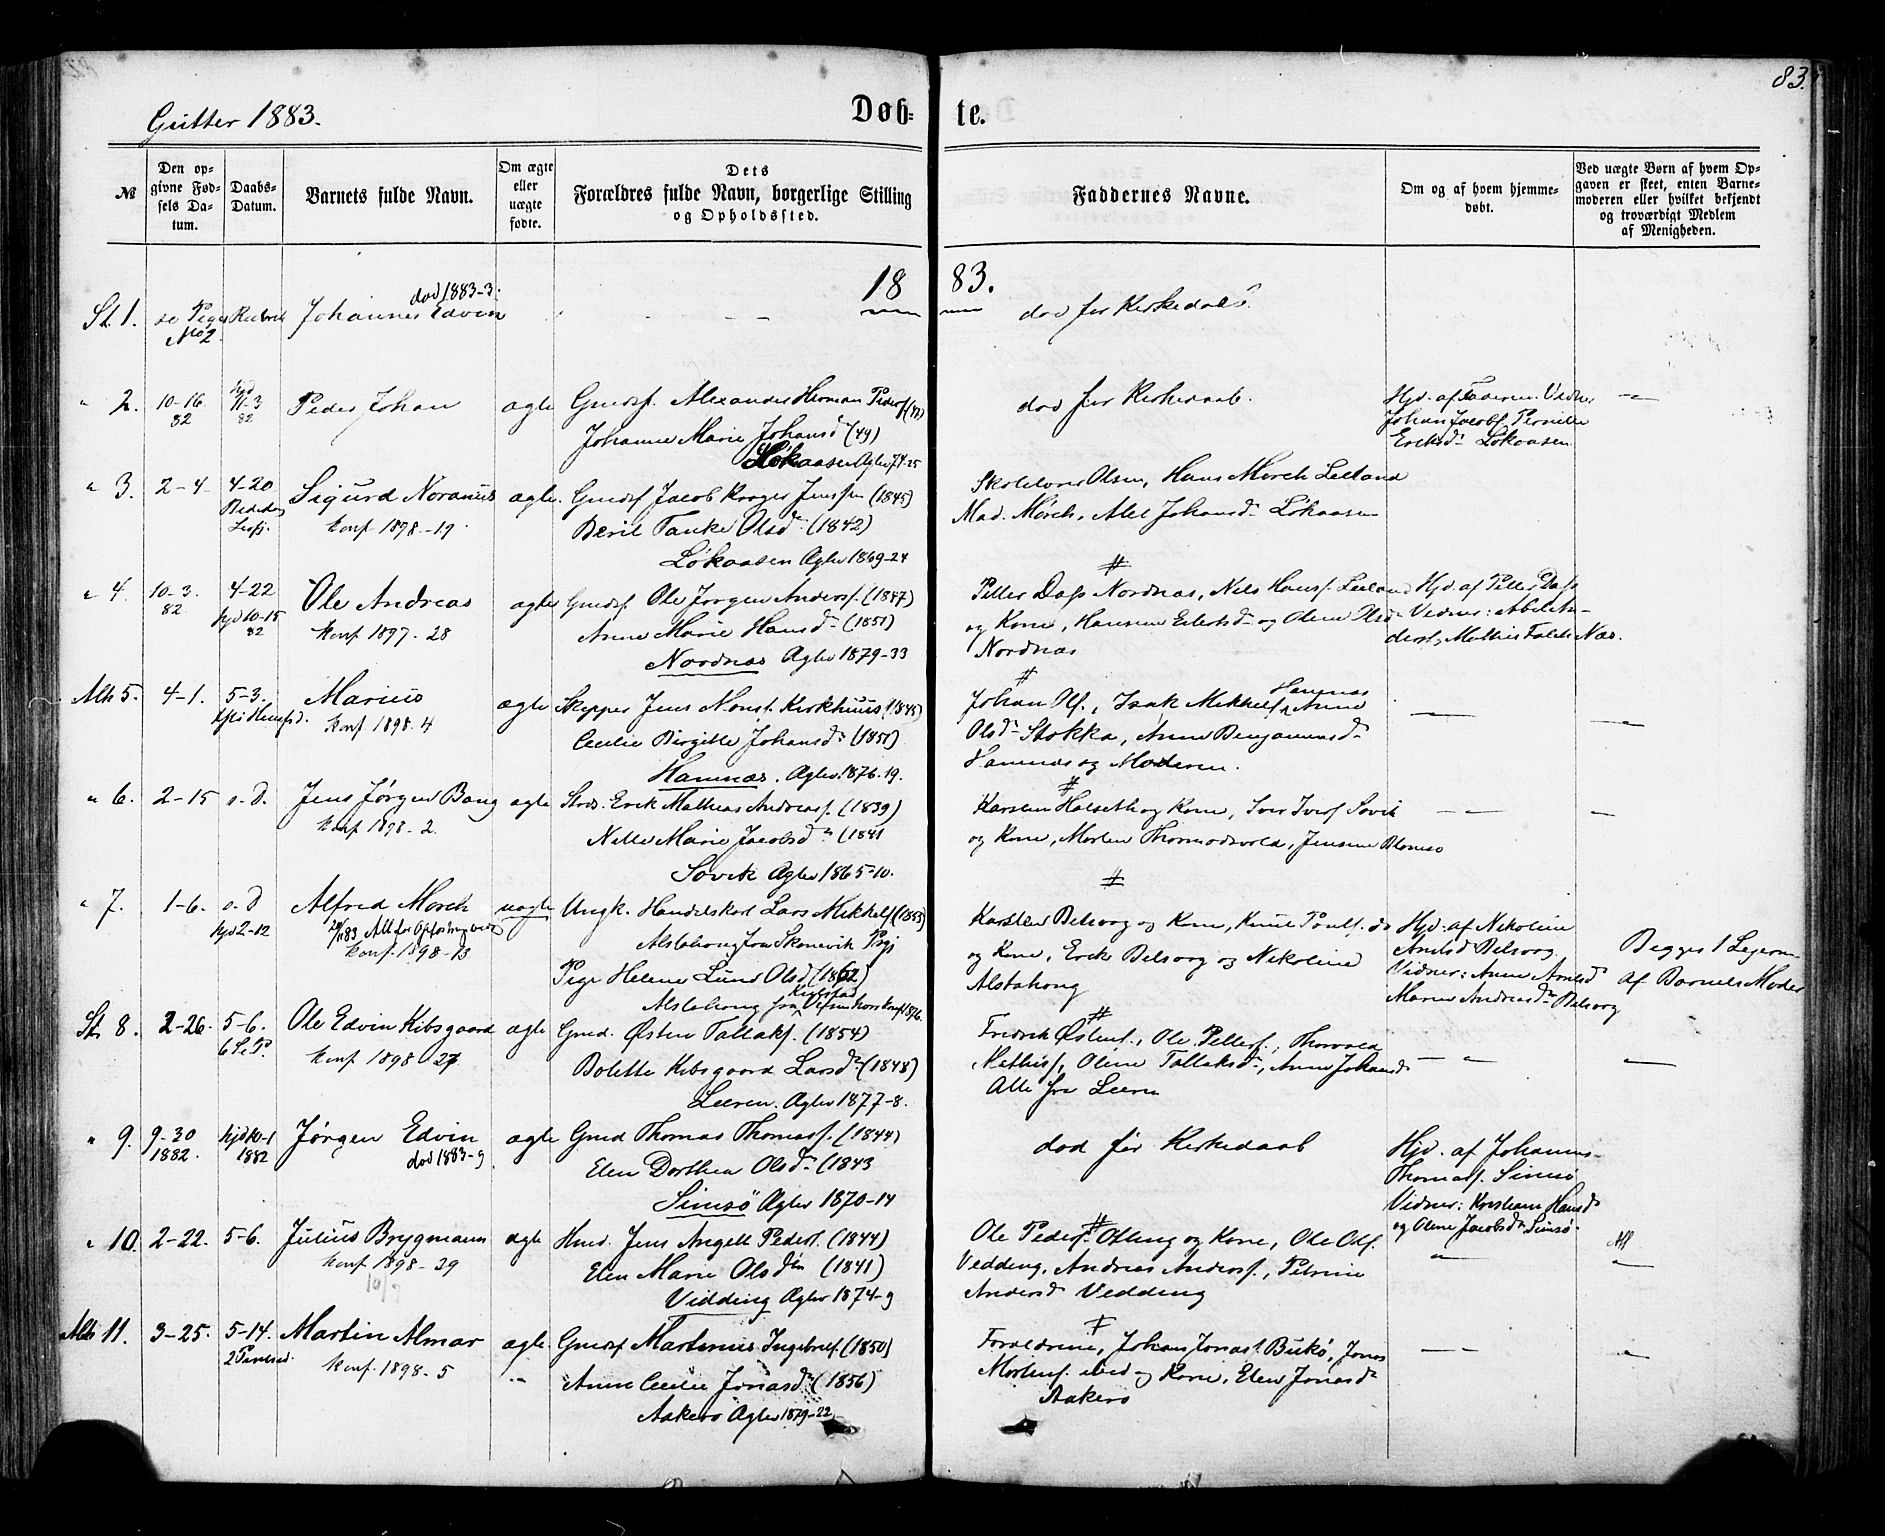 83.
Gutter 1883.
Døb-
te.
№
Den op-
givne Fød-
sels Da-
tum.
Daabs-
Datum.
Barnets fulde Navn.
Om ægte
eller
uægte
fødte.
Dets
Forældres fulde Navn, borgerlige Stilling
og Opholdssted.
Faddernes Navne.
Om og af hvem hjemme-
døbt.
Ved uægte Børn af hvem Op-
gaven er skeet, enten Barne-
moderen eller hvilket bekjendt
og troværdigt Medlem
af Menigheden.
18
83.
St. 1.
se Piger
No 2.
Rubrik
død 1883-3.
Johannes Edvin
død før Kirkedaab.
" 2.
10-16
82
hjd
11-3
82
Peder Johan
ægte
Gmdsf. Alexander Herman Pedersf (47)
Johanne Marie Johansd (49)
Løkaasen Agtev 74-25
død før Kirkedaab.
Hjd. af Faderen. Vidner
Johan Jacobs. Pernille
Ericksd Løkaasen
" 3.
2-4
4-20
Sigurd Noranus
konf 1898-19.
ægte.
Gmdsf Jacob Krøger Jenssen (1845)
Berit Tanke Olsd. (1842)
Løkaasen Agtev 1869-24
Skolelærer Olsen, Hans Mørch Leeland
Mad. Mørch, Alet Johansd Løkaasen
" 4.
10-3.
82
4-22
hjd 10-15
82
Ole Andreas
konf 1897-28
ægte
Gmdsf. Ole Jørgen Andersf. (1847)
Anne Marie Hansd (1851)
Nordnæs Agtev 1879-33
#
Petter Dass Nordnæs, Nils Hansf. Leeland
og Kone, Hansine Eilertsd og Oline Olsd
Nordnæs
Hjd. af Petter Dass
Vidner:
Mathis Falch Næs.
Alh 5.
4-1.
5-3.
Marius
konf 1898-4
ægte
Skipper Jens Monst. Kirkhuus (1845)
Cecilie Birgitte Johansd (1851)
Hamnæs. Agtev. 1876-19.
#
Johan Ols., Isak Mikkelsf Hamnæs Anne
Olsd Stokka, Anne Benjaminsd
Hamnæs og Moderen.
" 6.
2-15
s. D.
Jens Jørgen Bang
konf 1898-2.
ægte
Strds. Erik Mathias Andreasf. (1839)
Nille Marie Jacobsd (1841
Søvik Agtev 1865-10.
#
Karsten Halseth og Kone, Iver Iversf Søvik
og Kone, Morten Thormodsvold, Jensine Blomsø
" 7.
1-6.
s. D
hjd 2-12
Alfred Mørch
konf. 1898-13
uægte
Ungk. Handelskarl Lars Mikkelsf (1853)
Alstahoug fra Skonevik Prgj
Pige Helene Lund Olsd (1862)
Alstahoug fra
#
Karsten Belsvog og Kone, Knut Poulsf. do
og Kone, Erik Belsvog og Nikoline
Alstahoug
Hjd. af Nikoline
Arntsd Belsvog
Vidner: Anne Arntsd
Maren Andreasd Belsvog
Begges 1 Leierm
af Barnets Moder
St. 8.
2-26.
5-6.
Ole Edvin Kibsgaard
konf 1898-27
ægte
Gmd. Østen Tollaksf. (1854)
Bolette Kibsgaard Larsd (1848)
Leeren. Agtev 1877-8.
#
Fredrik Østensf., Ole Pettersf., Thorvald
Mathisf, Oline Tollaksd, Anne Johansd
Alle fra Leeren
" 9.
9-30
1882.
hjd 10-1
1882
Jørgen Edvin
død 1883-9
ægte
Gmd Thomas Thomasf. (1844)
Elen Dorthea Olsd (1843
Simsø Agtev 1870-14
død før Kirkedaab
Hjd. af Johannes
Thomasf. Simsø
Vidner: Kirstiane Hansd
og Oline Jacobsd Simsø.
" 10.
2-22.
5-6.
Julius Brygmann
konf 1898-29
ægte
Hmd. Jens Angell Pedersf. (1844)
Elen Marie Olsd (1841)
Vidding Agtev 1874-9
#
Ole Pedersf. Offling og Kone, Ole Olsf.
Vedding, Andreas Andersf., Petrine
Andersd Vedding
Alh 11.
3-25.
5-14.
Martin Almar
konf. 1898-5
ægte.
Gmdsf Martinus Ingebretsf. (1850)
Anne Cecilie Jonasd (1856)
Aakerø Agtev 1879-22
#
Forældrene, Johan Jonasf. Bukø, Jonas
Mortensf. ibid og Kone, Elen Jonasd
Aakerø